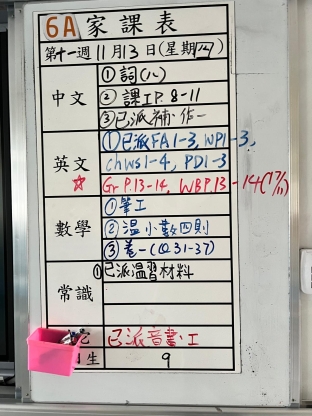 6A 家課表
第十一週 11月13日(星期四)
中文
①詞(八)
②課工P.8-11
③已派補、作一
英文
①已派FA1-3, WP1-3,
chws1-4, PD1-3
☆ Gr P.13-14, WB P.13-14(17/11)
數學
①筆工
②温小數四則
③卷一(Q31-37)
常識
①已派温習材料
已派音書、工
生
9